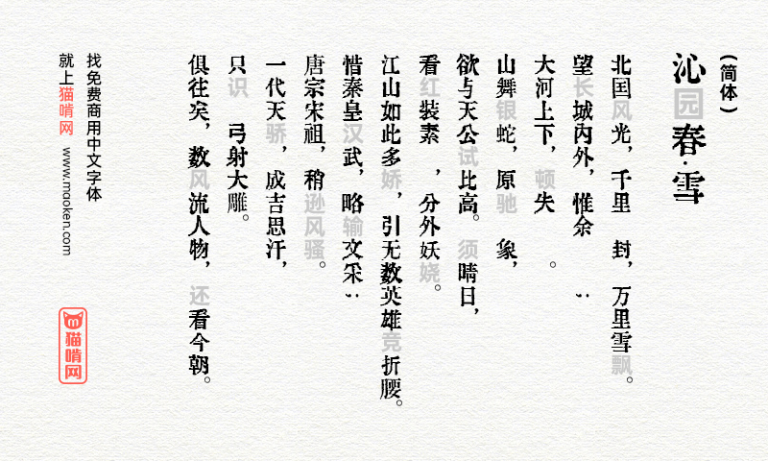 (简体)
沁园春·雪
北国风光，千里 封，万里雪飘。
望长城内外，惟余 ；
大河上下，顿失 。
山舞银蛇，原驰 象，
欲与天公试比高。须晴日，
看红装素 ，分外妖娆。
江山如此多娇，引无数英雄竞折腰。
惜秦皇汉武，略输文采；
唐宗宋祖，稍逊风骚。
一代天骄，成吉思汗，
只识 弓射大雕。
俱往矣，数风流人物，还看今朝。
找免费商用中文字体
就上猫啃网 www.maoken.com
猫啃网